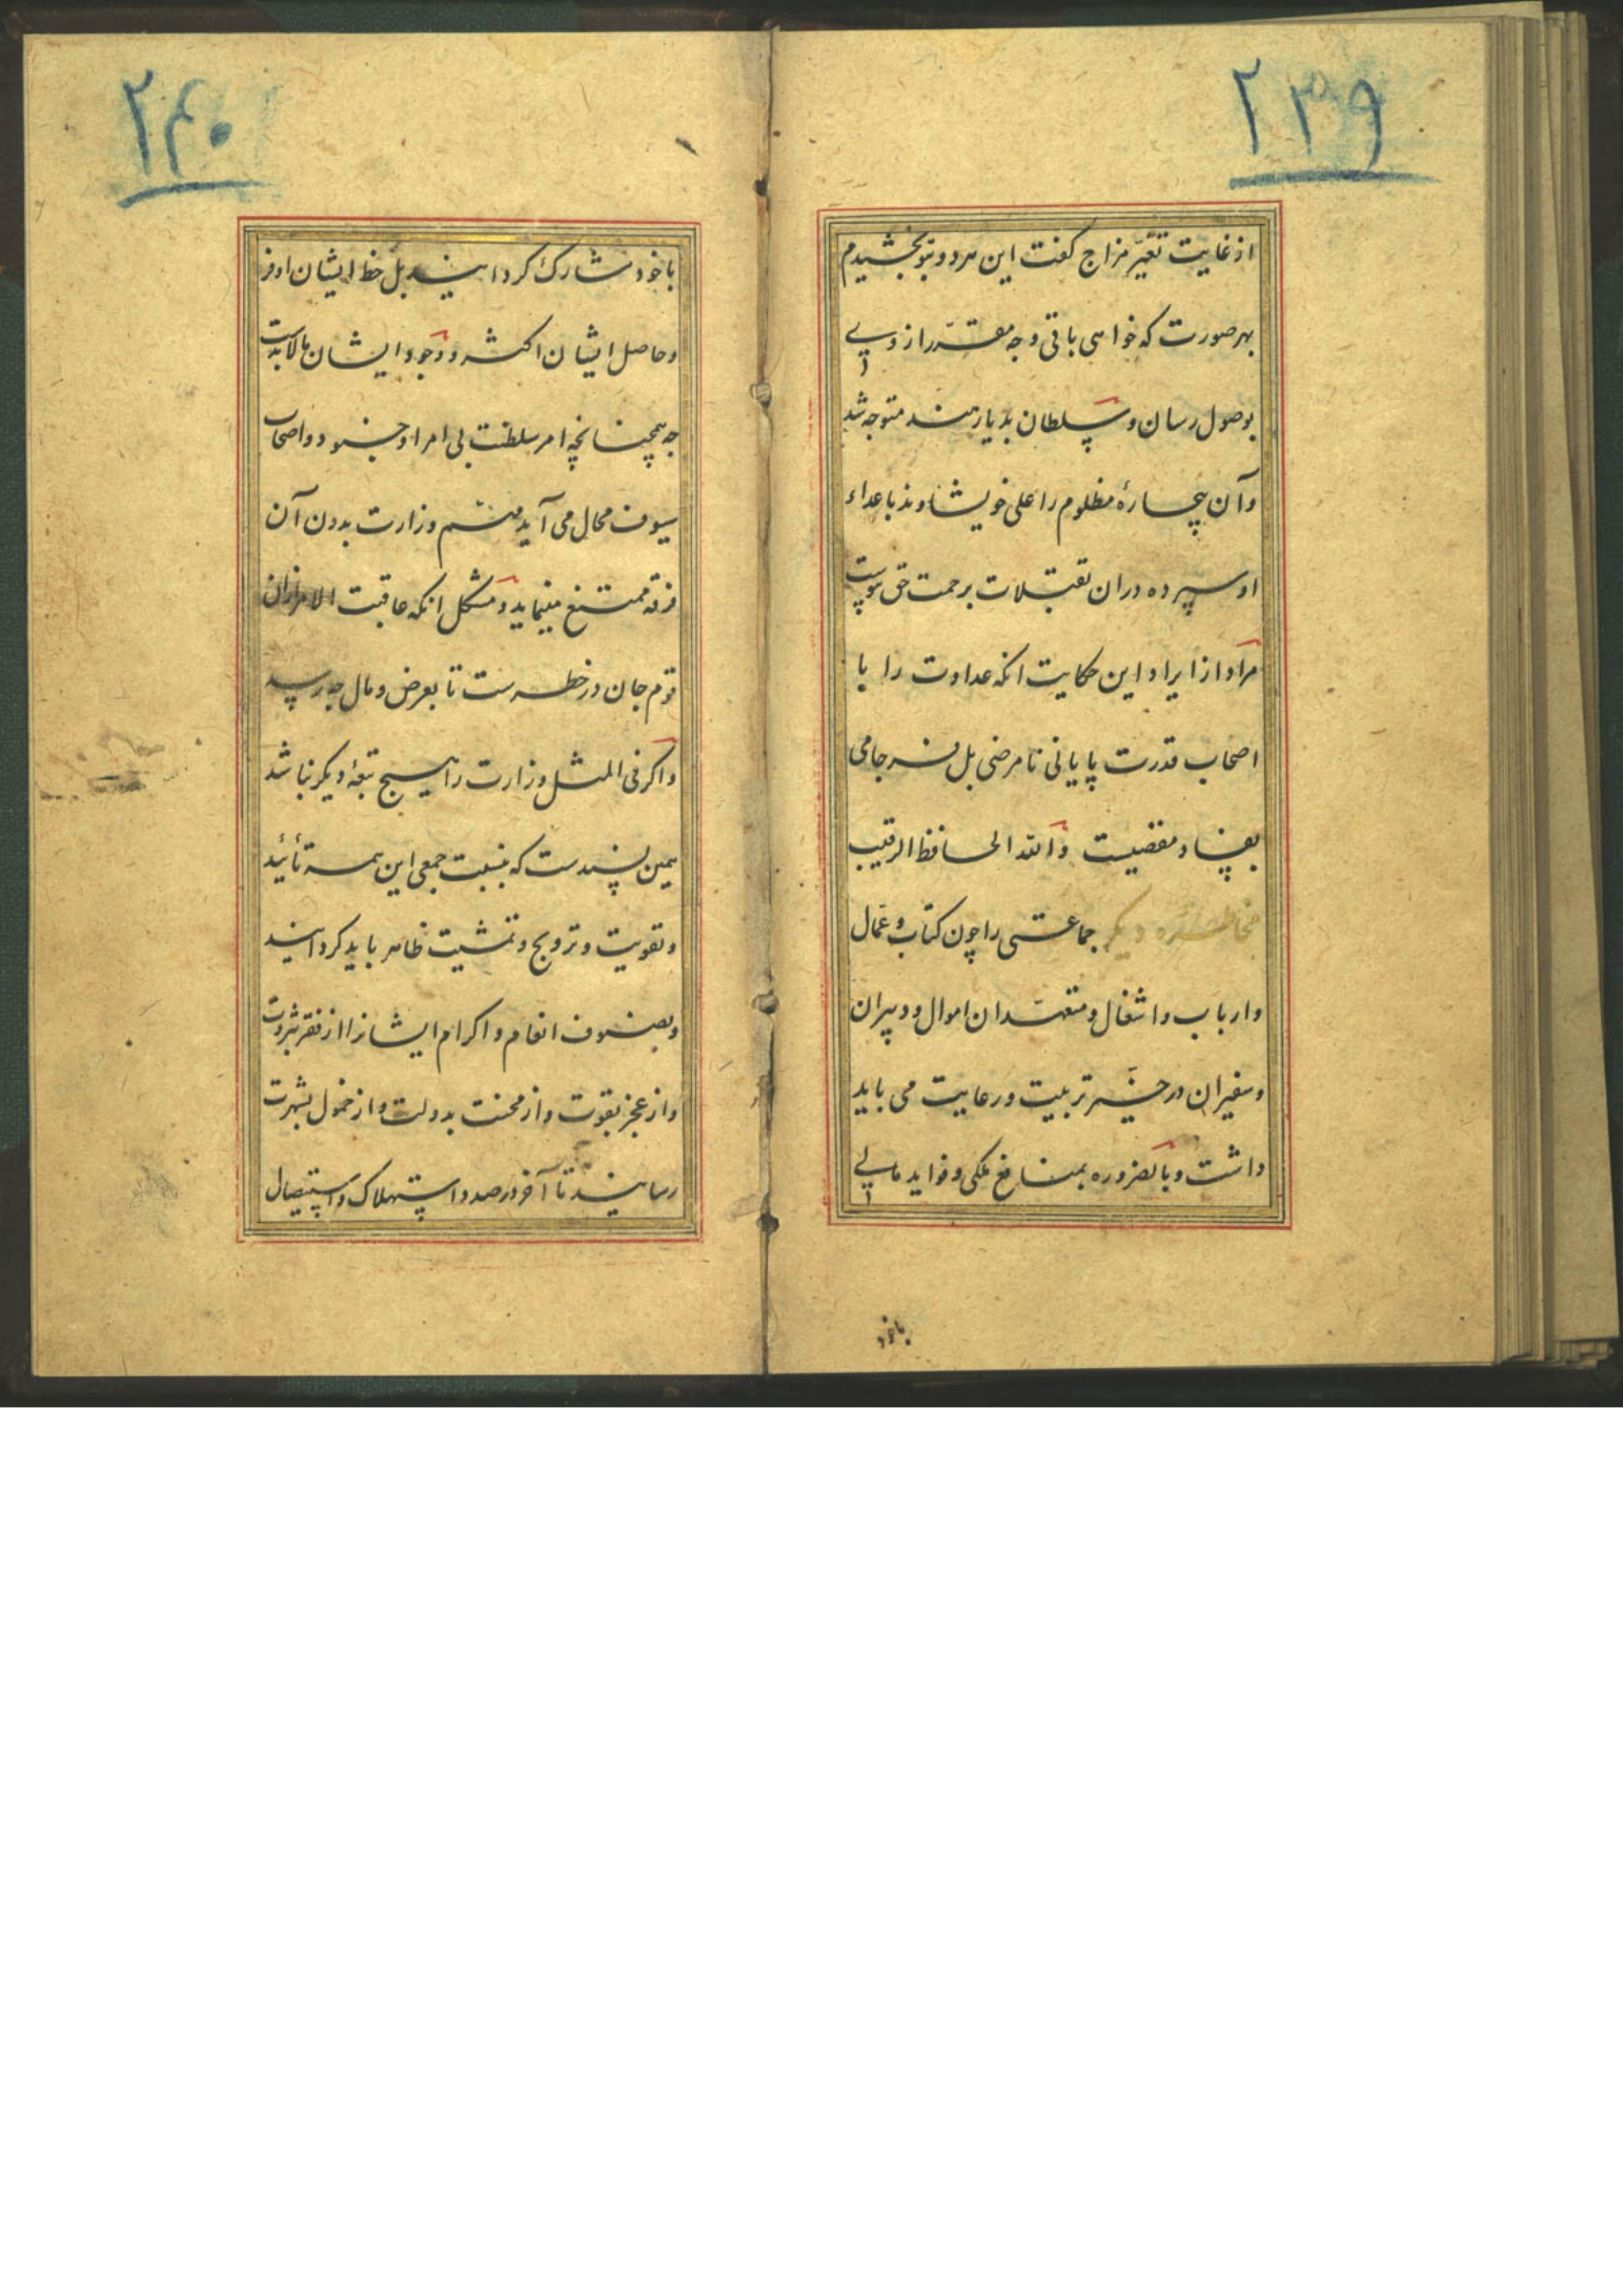 ۲۳۹
از غایت تغیّر مزاج کفت این هردو بتو بخشیدم
بهر صورت که خواهی باقی وجه مقرّر از وی
بوصول رسان و سلطان بدیار هند متوجه شد
وآن بیچارهٔ مظلوم را علی خویشاوند باعداء
او سپرده دران تقبّلات برحمت حق پیوست
مراد از ایراد این حکایت انکه عداوت را با
اصحاب قدرت پایانی نامرضی بل فرجامی
بفساد مفضیست والله الحافظ الرقیب
مخاطره دیکر جماعتی را چون کتاب و عمال
وارباب واشغال ومتعهّدان اموال ودبیران
وسفیران در حیّز تربیت ورعایت می باید
داشت وبالضروره بمنافع ملکی وفواید مالی
باخود
۲۴۰
باخود مشارک کردانید بل حظ ایشان اوفر
وحاصل ایشان اکثر ووجود ایشان مالابدست
جه همچنانچه امر سلطنت بی امرا وجنود واصحاب
سیوف محال می آید مهم وزارت بدون آن
فرقه ممتنع مینماید ومشکل انکه عاقبت الامر ازان
قوم جان در خطرست تا بعرض ومال جه رسد
واکر فی المثل وزارت را هیچ تبعهٔ دیکر نباشد
همین بسندست که بنسبت جمعی این همه تأئید
وتقویت وترویج وتمشیت ظاهر باید کردانید
وبصنوف انعام واکرام ایشانرا از فقر بثروت
واز عجز بقوت واز محنت بدولت واز خمول بشهرت
رسانید تا آخر درصدد استهلاک واستیصال